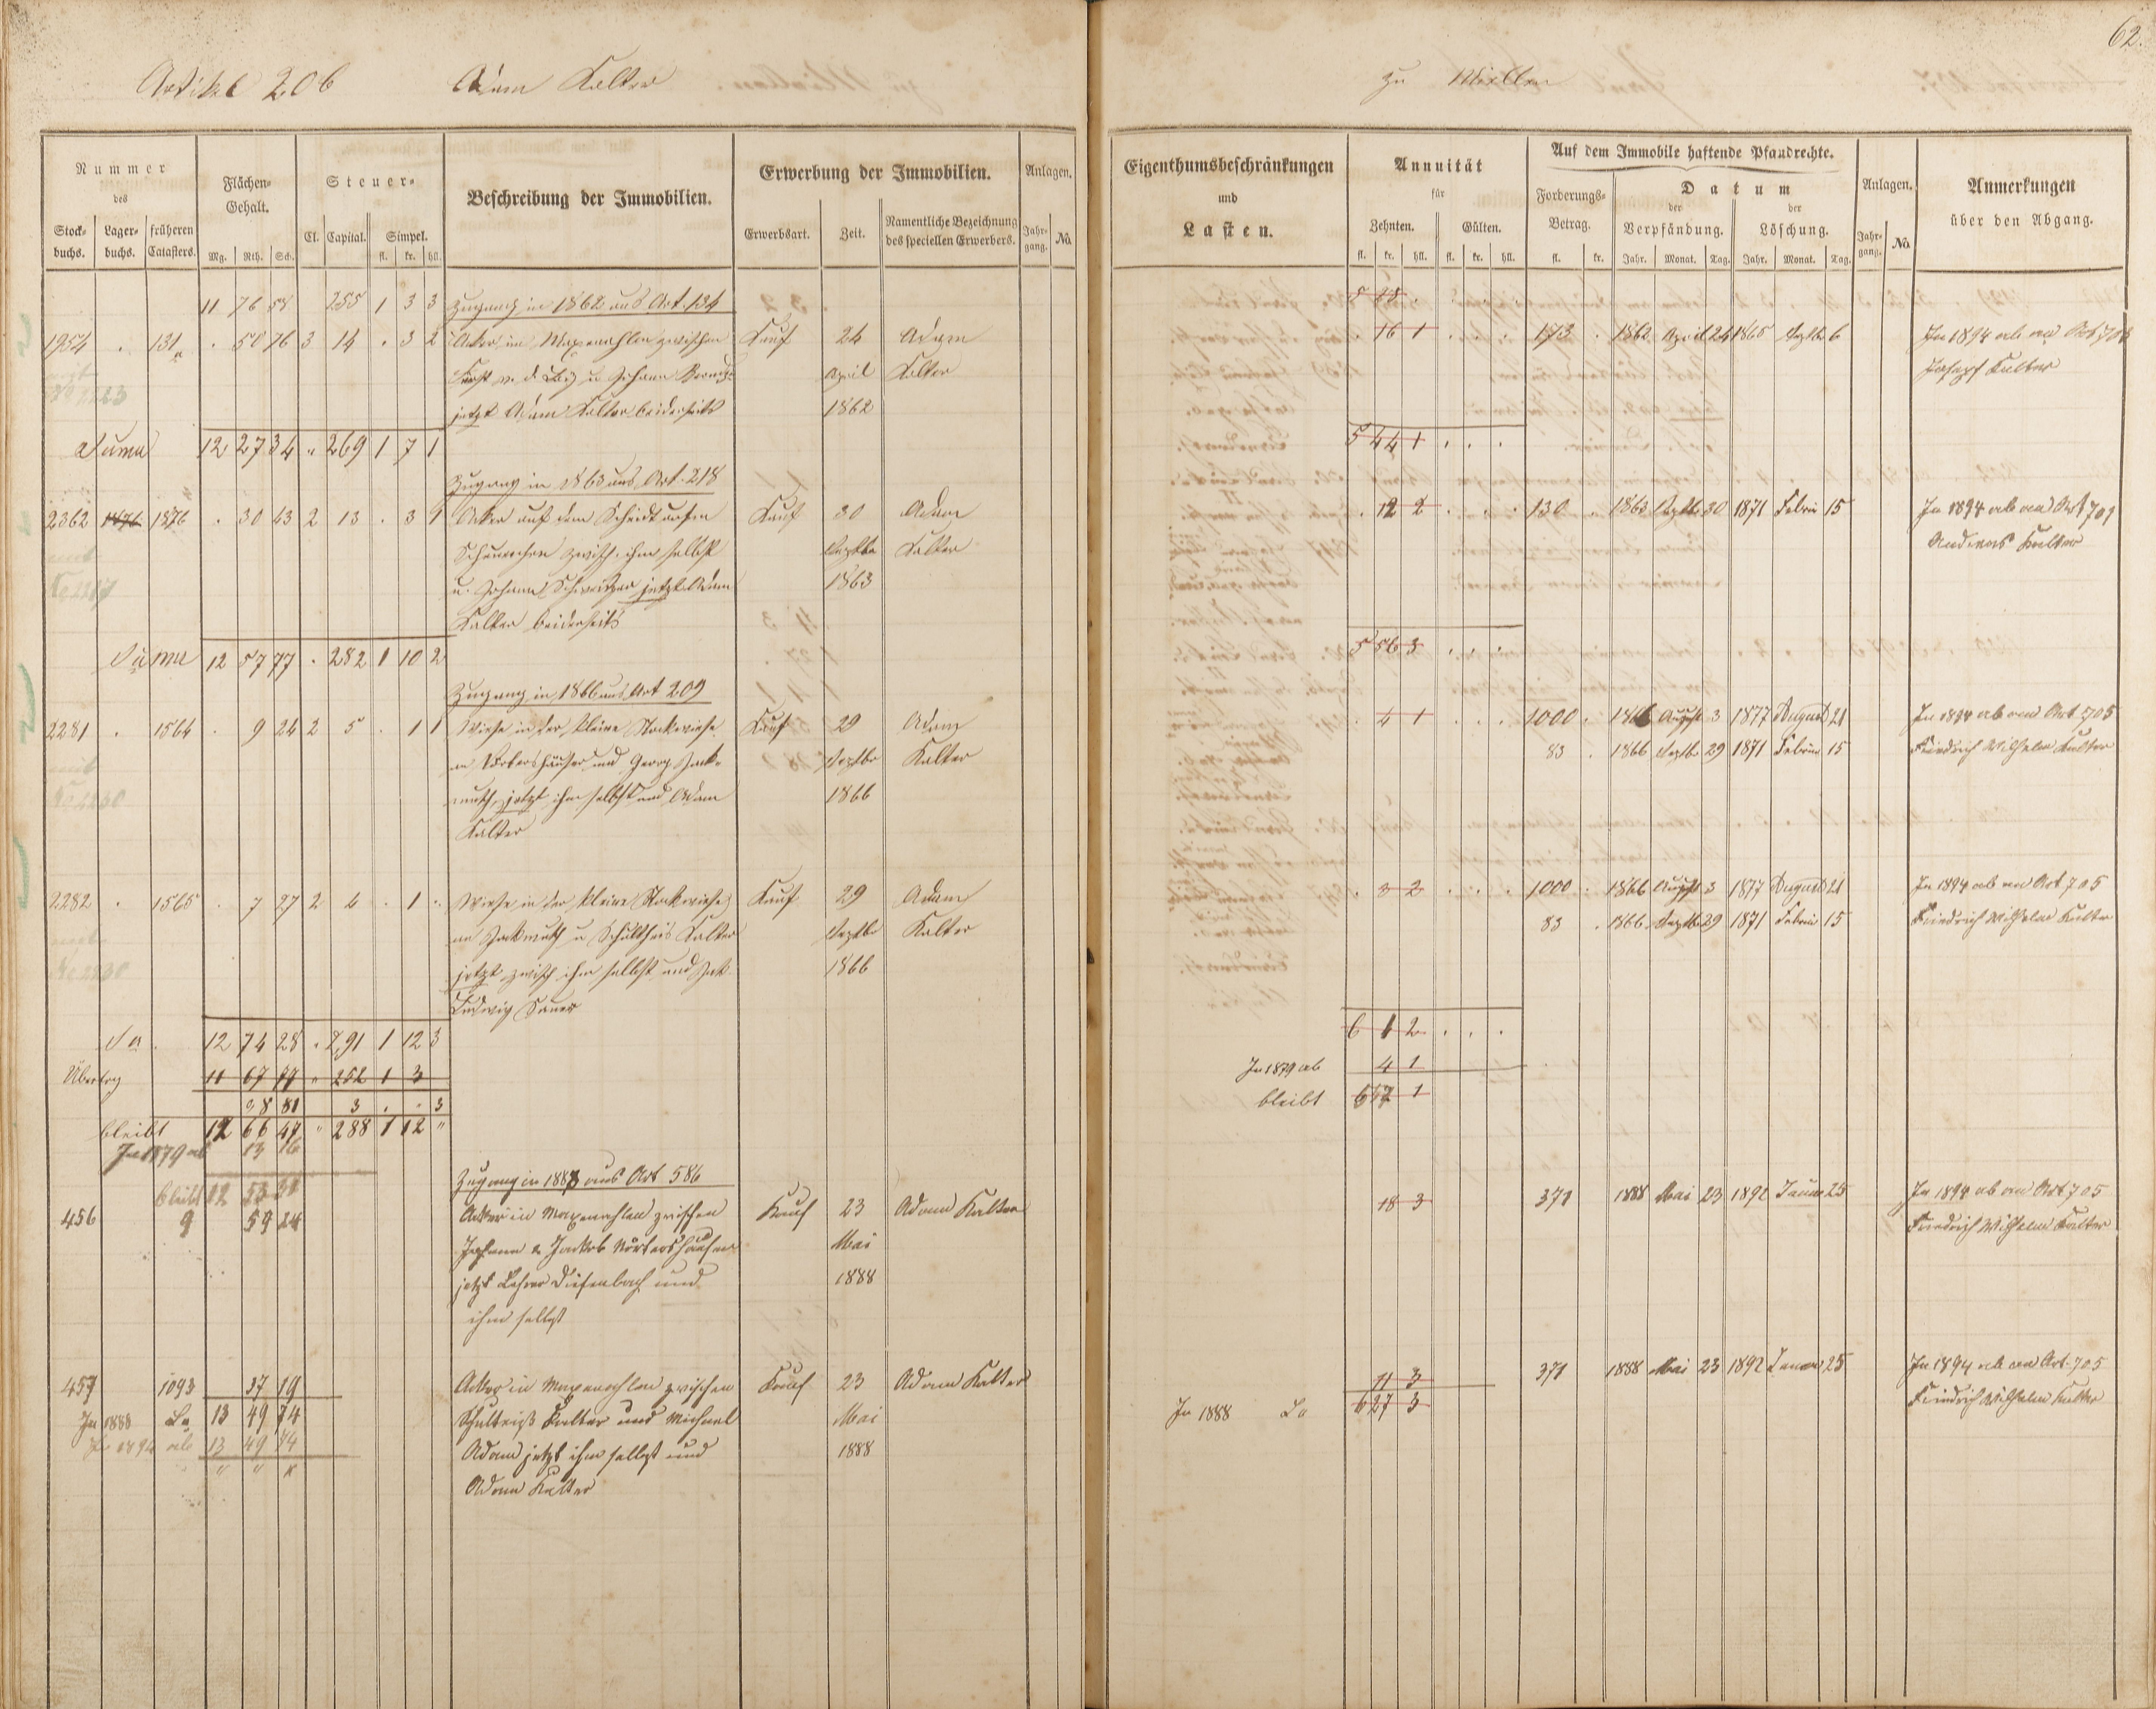 62.
Artikel 206 Adam Kalter zu Miellen
Nummer
des
Stock-
buchs.
Lager-
buchs.
früheren
Catasters.
Flächen-
Gehalt.
Mg. Rth. Sch.
Steuer-
Cl. Capital. Simpel.
fl. kr. hll.
Beschreibung der Immobilien.
Erwerbung der Immobilien.
Erwerbsart. Zeit. Namentliche Bezeichnung
des speciellen Erwerbers.
Anlagen.
Jahr-
gang. No.
Eigenthumsbeschränkungen
und
Lasten.
Annuität
für
Zehnten. Gülten.
fl. kr. hll. fl. kr. hll.
Auf dem Immobile haftende Pfandrechte.
Forderungs-
Betrag.
fl. kr.
Datum
der
Verpfändung.
der
Löschung.
Jahr. Monat. Tag. Jahr. Monat. Tag.
Anlagen.
Jahr-
gang. No.
Anmerkungen
über den Abgang.
11 76 58 255 1 3 3 Zugang in 1862 aus Art. 134 5 28
1954 131a 50 76 3 14 3 2 Acker im Maxenahlen zwischen Kauf 24 Adam 16 1 173 1862 April 24 1865 Septbr 6 In 1894 ab an Art 708
April Kalter Joseph Kalter
jetzt Adam Kalter beiderseits 1862
Suma 12 27 34 269 1 7 1 5 44 1
Zugang in 1863 aus Art. 218
2362 1476 1876 30 43 2 13 3 1 Acker auf dem Scheidt Kauf 30 Adam 12 2 130 1863 Septbr 30 1871 Februar 15 In 1894 ab an Art 701
zwisch. ihm selbst Septbr Kalter Andreas Kalter
u. Johann jetzt Adam 1863
Kalter beiderseits
Suma 12 57 77 282 1 10 2 5 56 3
Zugang in 1866 aus Art 209
2281 1564 9 24 2 5 1 1 Wiese in der kleine Stockwiese Kauf 29 Adam 4 1 1000 1866 August 3 1877 August 21 In 1894 ab an Art 705
und Georg Septbr Kalter 83 1866 Septbr 29 1871 Februar 15 Friedrich Wilhelm Kalter
jetzt ihm selbst und Adam 1866
Kalter
2282 1565 7 27 2 4 1 Wiese in der kleine Stockwiese Kauf 29 Adam 3 2 1000 1866 August 3 1877 August 21 In 1894 ab an Art 705
u Schultheis Kalter Septbr Kalter 83 1866 Septbr 29 1871 Februar 15 Friedrich Wilhelm Kalter
jetzt zwisch ihm selbst und 1866
Ludwig Sauer
Sa. 12 74 28 291 1 12 3 6 4 2
Übertrg 11 67 252 1 3 In 1879 ab 4 1
8 81 3 3 bleibt 1
bleibt 12 66 47 288 1 12
In 1879 ab 13 16
bleibt 12 53 31 Zugang in 1888 aus Art 586
456 9 59 24 Acker in Maxenahlen zwischen Kauf 23 Adam Kalter 18 3 371 1888 Mai 23 1892 Januar 25 In 1894 ab an Art 705
Johann & Jakob Mai Friedrich Wilhelm Kalter
jetzt Lehrer Diefenbach und 1888
ihm selbst
457 1093 37 19 Acker in Maxenahlen zwischen Kauf 23 Adam Kalter 11 3 371 1888 Mai 23 1892 Januar 25 In 1894 ab an Art. 705
In 1888 Sa 13 49 74 Schultheiß Kalter und Michael Mai In 1888 Sa 6 27 3 Friedrich Wilhelm Kalter
In 1894 ab 13 49 74 Adam jetzt ihm selbst und 1888
Adam Kalter